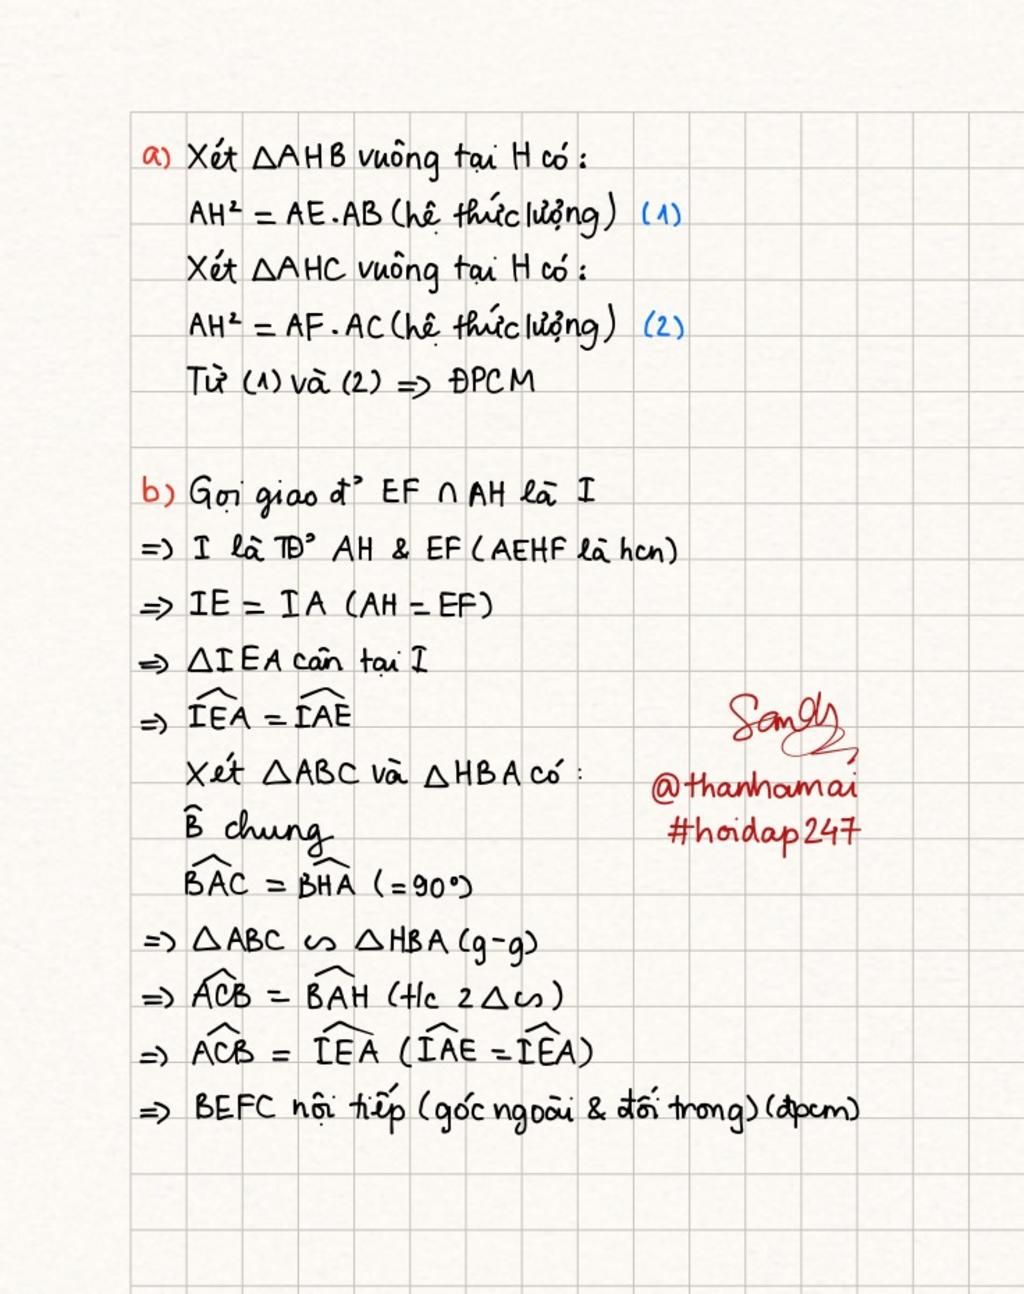 a) Xét ΔAHB vuông tại H có:
AH² = AE.AB (hệ thức lượng) (1)
Xét ΔAHC vuông tại H có:
AH² = AF.AC (hệ thức lượng) (2)
Từ (1) và (2) => ĐPCM
b) Gọi giao đ' EF ∩ AH là I
=> I là TĐ' AH & EF (AEHF là hcn)
=> IE = IA (AH = EF)
=> ΔIEA cân tại I
=> \widehat{IEA} = \widehat{IAE}
Xét ΔABC và ΔHBA có:
\widehat{B} chung
\widehat{BAC} = \widehat{BHA} (=90°)
=> ΔABC ∽ ΔHBA (g-g)
=> \widehat{ACB} = \widehat{BAH} (t/c 2Δ∽)
=> \widehat{ACB} = \widehat{IEA} (\widehat{IAE} = \widehat{IEA})
=> BEFC nội tiếp (góc ngoài & đối trong) (đpcm)
Sandy
@thanhamai
#hoidap247